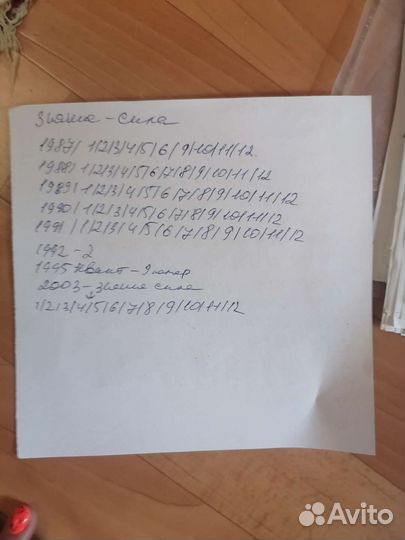 Знание - сила
1987/ 1/2/3/4/5/6/9/10/11/12.
1988/ 1/2/3/4/5/6/7/8/9/10/11/12
1989/ 1/2/3/4/5/6/7/8/9/10/11/12
1990/ 1/2/3/4/5/6/7/8/9/10/11/12
1991/ 1/2/3/4/5/6/7/8/9/10/11/12
1992 - 2
1995 Квант - 9 номер
2003 - Знание сила
1/2/3/4/5/6/7/8/9/10/11/12
Avito